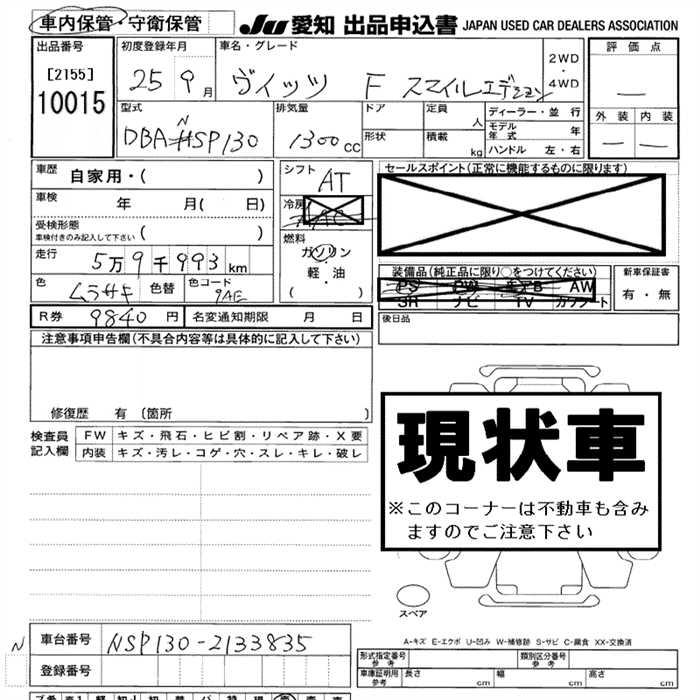 車内保管・守衛保管 JU 愛知 出品申込書 JAPAN USED CAR DEALERS ASSOCIATION
出品番号 初度登録年月 車名・グレード 2WD・4WD 評価点
[2155] 25 9月 ヴィッツ F スマイルエディション —
10015
型式 排気量 ドア 定員 人 ディーラー・並行 外装 内装
N
DBA-NSP130 1300cc 形状 積載 kg モデル年式 年 — —
ハンドル 左・右
車歴 自家用・( ) シフト AT セールスポイント(正常に機能するものに限ります)
車検 年 月( 日) 冷房 AAC
受検形態 車検付きのみ記入して下さい ( ) 燃料
走行 5万9千993km ガソリン 装備品(純正品に限り○をつけてください) 新車保証書
軽・油 PS PW エアB AW 有・無
色 ムラサキ 色替 色コード 9AE ( ) SR ナビ TV カワシート
R券 9840円 名変通知期限 月 日 後日品
注意事項申告欄(不具合内容等は具体的に記入して下さい)
修復歴 有 (箇所 )
現状車
※このコーナーは不動車も含み
ますのでご注意下さい
検査員 FW キズ・飛石・ヒビ割・リペア跡・X要
記入欄 内装 キズ・汚レ・コゲ・穴・スレ・キレ・破レ
スペア
A-キズ E-エクボ U-凹み W-補修跡 S-サビ C-腐食 XX-交換済
N 車台番号 NSP130-2133835
登録番号
形式指定番号 参考 類別区分番号 参考
車庫証明用 参考 長さ cm 幅 cm 高さ cm